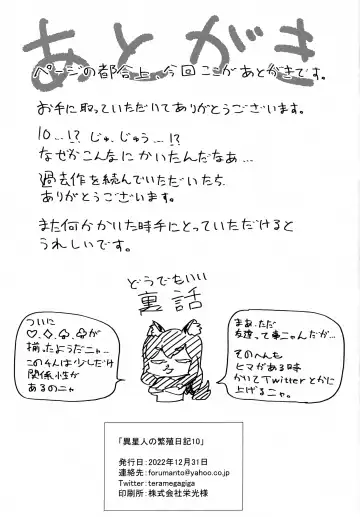 あとがき
ページの都合上、今回ここがあとがきです。
お手に取っていただいてありがとうございます。
10…!? じゅ、じゅう…!?
なぜかこんなにかいたんだなあ…
過去作を読んでいただいたら
ありがとうございます。
また何かかいた時手にとっていただけると
うれしいです。
どうでもいい
裏話
ついに
♡、◇、♧、♤が
揃ったようだニャ…
この4人は少しだけ
関係性が
あるのニャ
まぁ、ただ
友達って事ニャんだが…
そのへんも
ヒマがある時
かいてTwitterとかに
上げるニャ。
「異星人の繁殖日記10」
発行日：2022年12月31日
連絡先：forumanto@yahoo.co.jp
Twitter：teramegagiga
印刷所：株式会社栄光様